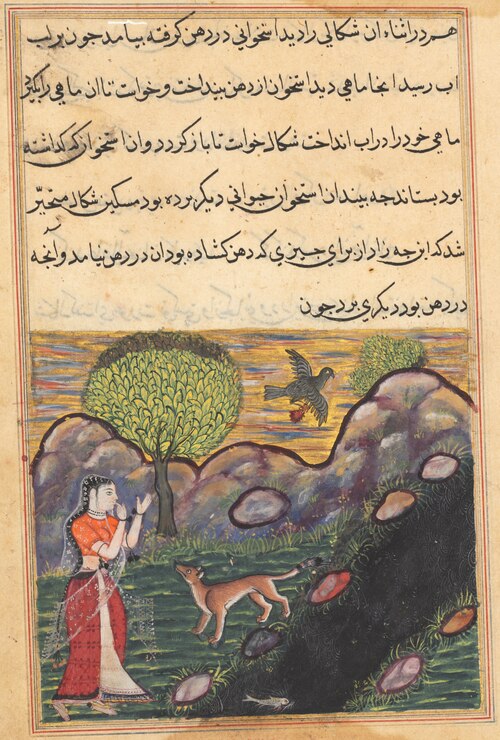 هم در اثناء ان شکالی را دید استخوانی در دهن کرفته بیامد جون بر لب
اب رسید انجا ماهی دید استخوان از دهن بینداخت و خواست تا ان ماهی را بکیرد
ماهی خود را در اب انداخت شکال خواست تا باز کردد و ان استخوان که کذاشته
بود بستاند جه بیند ان استخوان حیوانی دیکر برده بود مسکین شکال متحیّر
شد که این جه راز از برای جیزی که دهن کشاده بود ان در دهن نیامد و انجه
در دهن بود دیکری برد جون